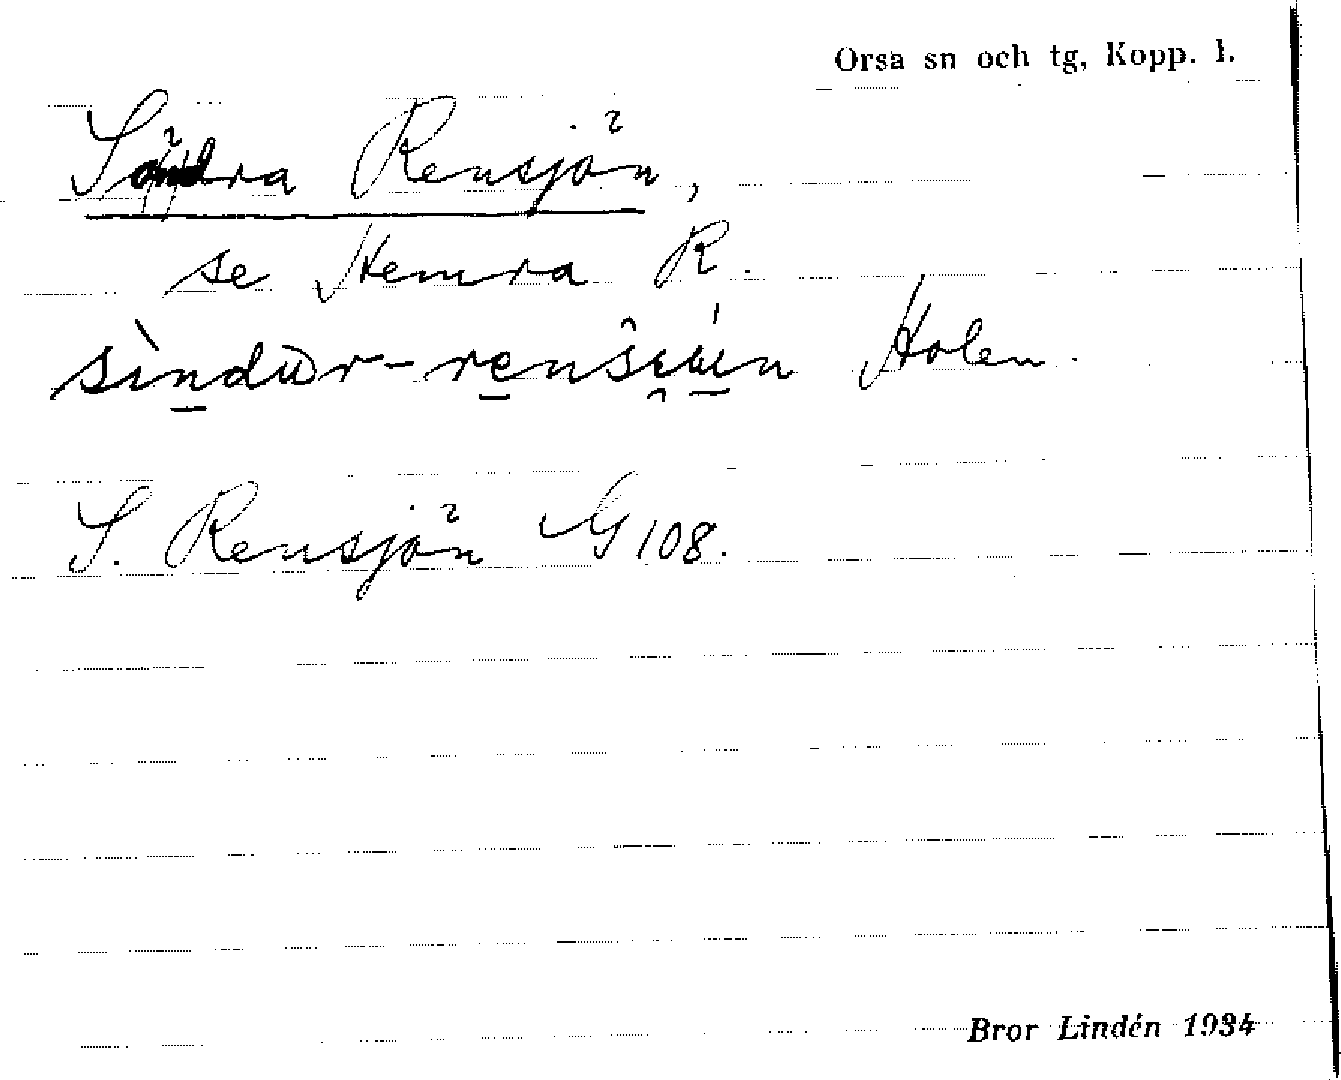 Orsa sn och tg, Kopp. l.
Södra Rensjön,
se Hemra R.
Holen.
S. Rensjön G 108.
Bror Lindén 1934